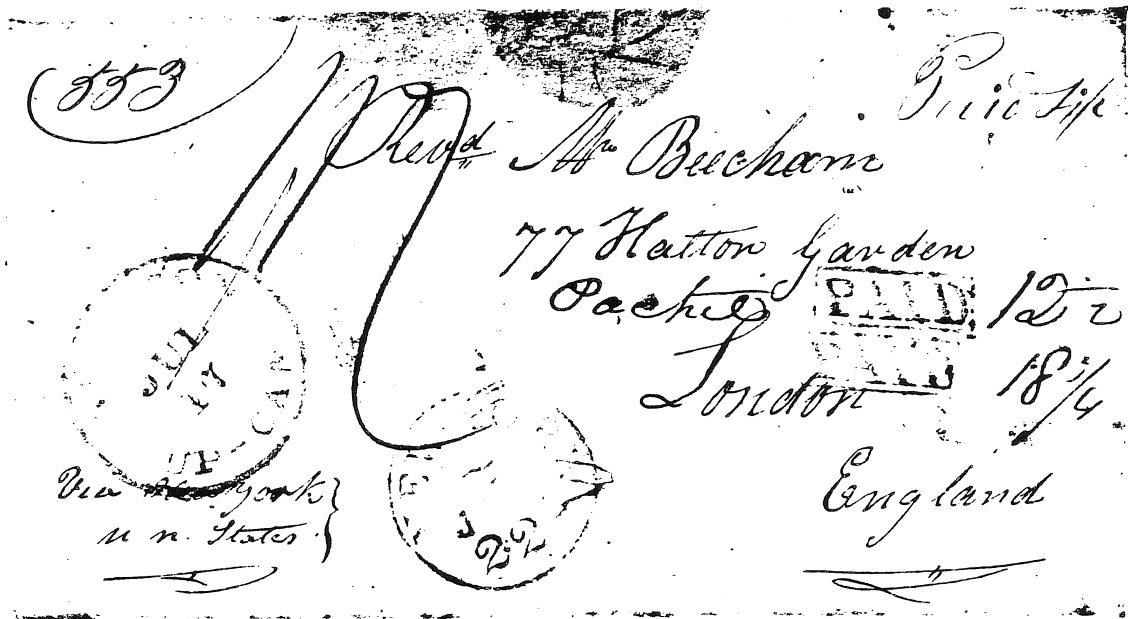 553
Paid
Revd Mr Beecham
77 Hatton Garden
Packet
PAID 12½
London
18¼
England
JUL
17
UP CAN
Via New York
U n. States
22